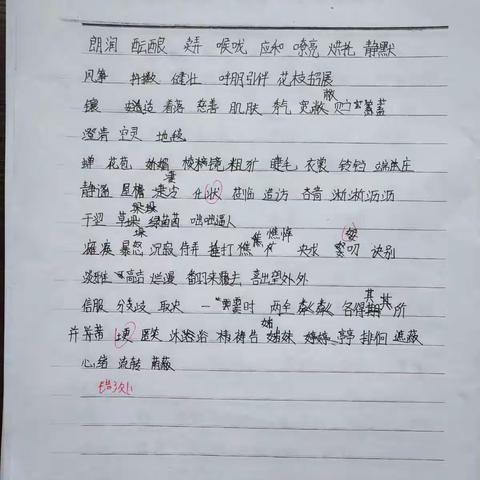 朗润 酝酿 卖弄 喉咙 应和 嘹亮 烘托 静默
风筝 抖擞 健壮 呼朋引伴 花枝招展
敝
镶 安适 着落 慈善 肌肤 秀气 宽敞 贮蓄
澄清 空灵 地毯
蝉 花苞 娇媚 棱镜 粗犷 睫毛 衣裳 铃铛 端庄
凄
静谧 屋檐 凄 化妆 莅临 造访 淅淅沥沥
垛
干涩 草垛 绿茵茵 咄咄逼人
垛 憔 憔悴
瘫痪 暴怒 沉寂 侍弄 捶打 憔悴 央求 絮叨 诀别
淡雅 高洁 烂漫 翻来覆去 喜出望外
信服 分歧 取决 一霎时 两全 粼粼 各得其所
并蒂 梗 匿笑 沐浴 祷告 姊妹 亭亭 徘徊 遮蔽
心绪 流转 荫蔽
错3处